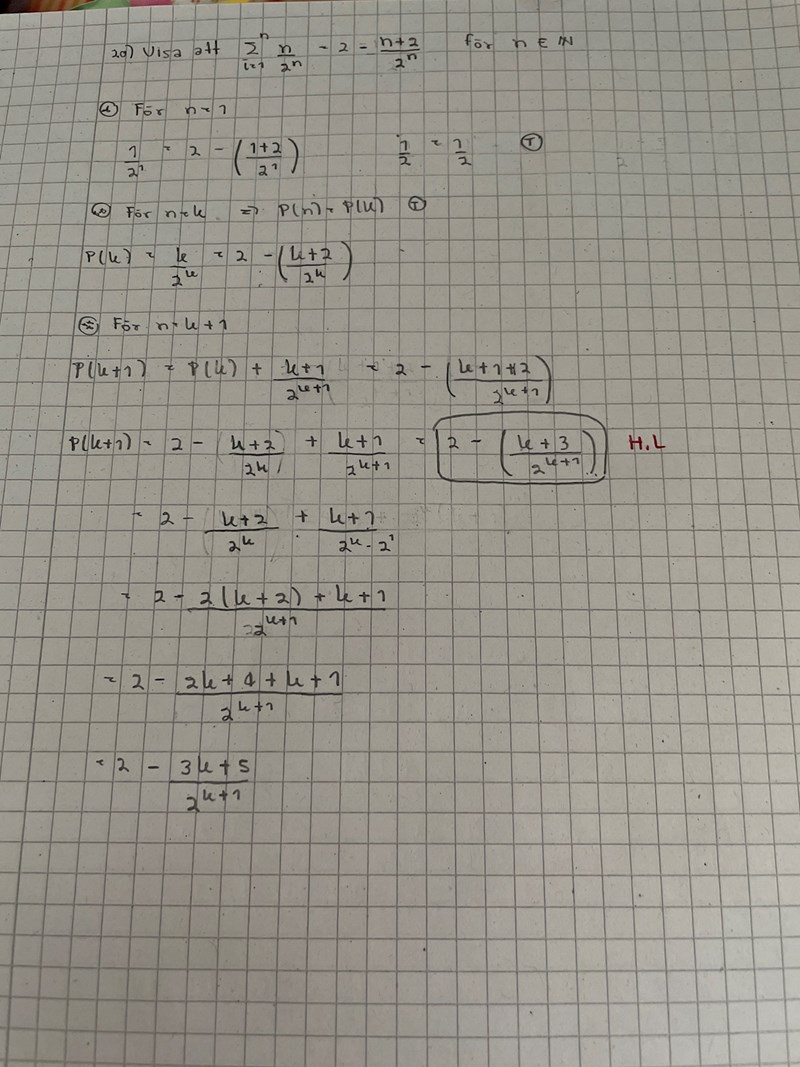 20) Visa att $\sum_{i=1}^{n} \frac{n}{2^n} - 2 = \frac{n+2}{2^n}$ för $n \in \mathbb{N}$
① För n = 1
$\frac{1}{2^1} = 2 - \left(\frac{1+2}{2^1}\right)$ $\frac{1}{2} = \frac{1}{2}$ Ⓣ
② För n = k ⇒ P(n) = P(k) Ⓣ
$P(k) = \frac{k}{2^k} = 2 - \left(\frac{k+2}{2^k}\right)$
③ För n = k+1
$P(k+1) = P(k) + \frac{k+1}{2^{k+1}} = 2 - \left(\frac{k+1+2}{2^{k+1}}\right)$
$P(k+1) = 2 - \left(\frac{k+2}{2^k}\right) + \frac{k+1}{2^{k+1}} = 2 - \left(\frac{k+3}{2^{k+1}}\right)$ H.L
$= 2 - \frac{k+2}{2^k} + \frac{k+1}{2^k \cdot 2^1}$
$= 2 - \frac{2(k+2) + k+1}{2^{k+1}}$
$= 2 - \frac{2k+4+k+1}{2^{k+1}}$
$= 2 - \frac{3k+5}{2^{k+1}}$